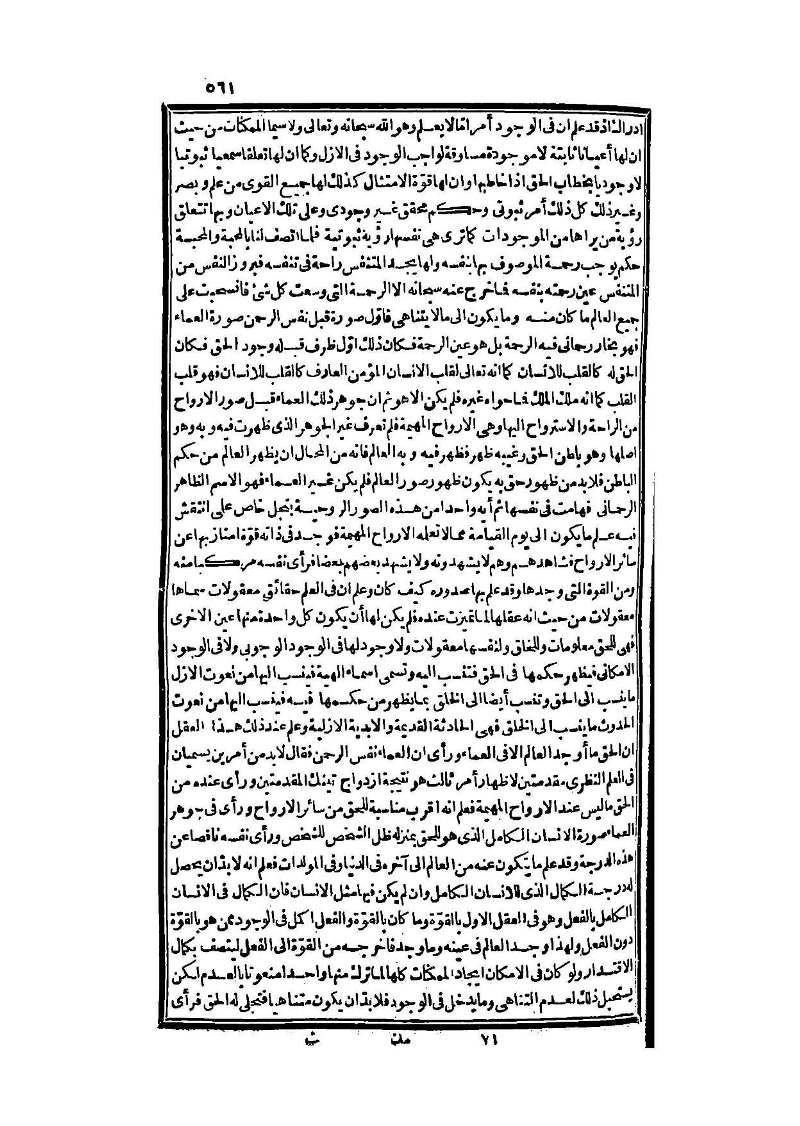 ٥٦١
ادراك اذ قد علم ان فى الوجود أمرا ما لا يعلم وهو الله سبحانه وتعالى ولا سيما الممكنات من حيث
ان لها أعيانا ثابتة لا موجودة مساوقة لواجب الوجود فى الازل وكما ان لها تعلقا سمعيا ثبوتيا
لا وجوديا بخطاب الحق اذا خاطبها وان لها قوة الامتثال كذلك لها جميع القوى من علم وبصر
وغير ذلك كل ذلك أمر ثبوتى وحكم محقق غير وجودى وعلى تلك الاعيان وبها تتعلق
رؤية من يراها من الموجودات كما ترى هى نفسها رؤية ثبوتية فلما اتصف لنا بالمحبة والمحبة
حكم يوجب رحمة الموصوف بها بنفسه ولهذا يجد المتنفس راحة فى تنفسه فبروز النفس من
المتنفس عين رحمته بنفسه فما خرج عنه سبحانه الا الرحمة التى وسعت كل شئ فانسحبت على
جميع العالم ما كان منه وما يكون الى ما لا يتناهى فاول صورة قبل نفس الرحمن صورة العماء
فهو بخار رحمانى فيه الرحمة بل هو عين الرحمة فكان ذلك اول ظرف قبله وجود الحق فكان
الحق له كالقلب للانسان كما انه تعالى لقلب الانسان المؤمن العارف كالقلب للانسان فهو قلب
القلب كما انه ملك الملك فما حواه غيره فلم يكن الا هو ثم ان جوهر ذلك العماء قبل صور الارواح
من الراحة والاسترواح اليها وهى الارواح المهيمة فلم تعرف غير الجوهر الذى ظهرت فيه وبه وهو
اصلها وهو باطن الحق وغيبه ظهر فظهر فيه وبه العالم فانه من المحال ان يظهر العالم من حكم
الباطن فلا بد من ظهور حق به يكون ظهور صور العالم فلم يكن غير العماء فهو الاسم الظاهر
الرحمانى فهامت فى نفسها ثم أيه واحدا من هذه الصور الروحية بتجل خاص على انتقش
فيه علم ما يكون الى يوم القيامة مما لا تعلمه الارواح المهيمة فوجد فى ذاته قوة امتاز بها عن
سائر الارواح فشاهدهم وهم لا يشهدونه ولا يشهد بعضهم بعضا فرأى نفسه مركبا منه
ومن القوة التى وجدها وقد علم بها صدوره كيف كان وعلم ان فى العلم حقائق معقولات سماها
معقولات من حيث انه عقلها لما تميزت عنده فلم يكن لها أن يكون كل واحدة منها عين الاخرى
فهى للحق معلومات وللخلق ولنفسها معقولات ولا وجود لها فى الوجود الوجوبى ولا فى الوجود
الامكانى فيظهر حكمها فى الحق فتنسب اليه وتسمى اسماء الهية فينسب اليها من نعوت الازل
ما ينسب الى الحق وتنسب أيضا الى الخلق بما يظهر من حكمها فيه فينسب اليها من نعوت
الحدوث ما ينسب الى الخلق فهى الحادثة القديمة والابدية الازلية وعلم عند ذلك هذا العقل
ان الحق ما أوجد العالم الا فى العماء ورأى ان العماء نفس الرحمن فقال لا بد من أمرين يسميان
فى العلم النظرى مقدمتين لاظهار أمر ثالث هو نتيجة ازدواج تينك المقدمتين ورأى عنده من
الحق ما ليس عند الارواح المهيمة فعلم انه اقرب مناسبة للحق من سائر الارواح ورأى فى جوهر
العماء صورة الانسان الكامل الذى هو للحق بمنزلة ظل الشخص للشخص ورأى نفسه ناقصا عن
هذه الدرجة وقد علم ما يتكون عنه من العالم الى آخره فى الدنيا وفى المولدات فعلم انه لا بد ان يحصل
له درجة الكمال الذى للانسان الكامل وان لم يكن فيها مثل الانسان فان الكمال فى الانسان
الكامل بالفعل وهو فى العقل الاول بالقوة وما كان بالقوة والفعل اكمل فى الوجود ممن هو بالقوة
دون الفعل ولهذا وجد العالم فى عينه وما وجد فاخرجه من القوة الى الفعل ليتصف بكمال
الاقتدار ولو كان فى الامكان ايجاد الممكنات كلها لما ترك منها واحدا منعوتا بالعدم لكن
يستحيل ذلك لعدم التناهى وما يدخل فى الوجود فلا بد ان يكون متناهيا فتجلى له الحق فرأى
٧١ ث